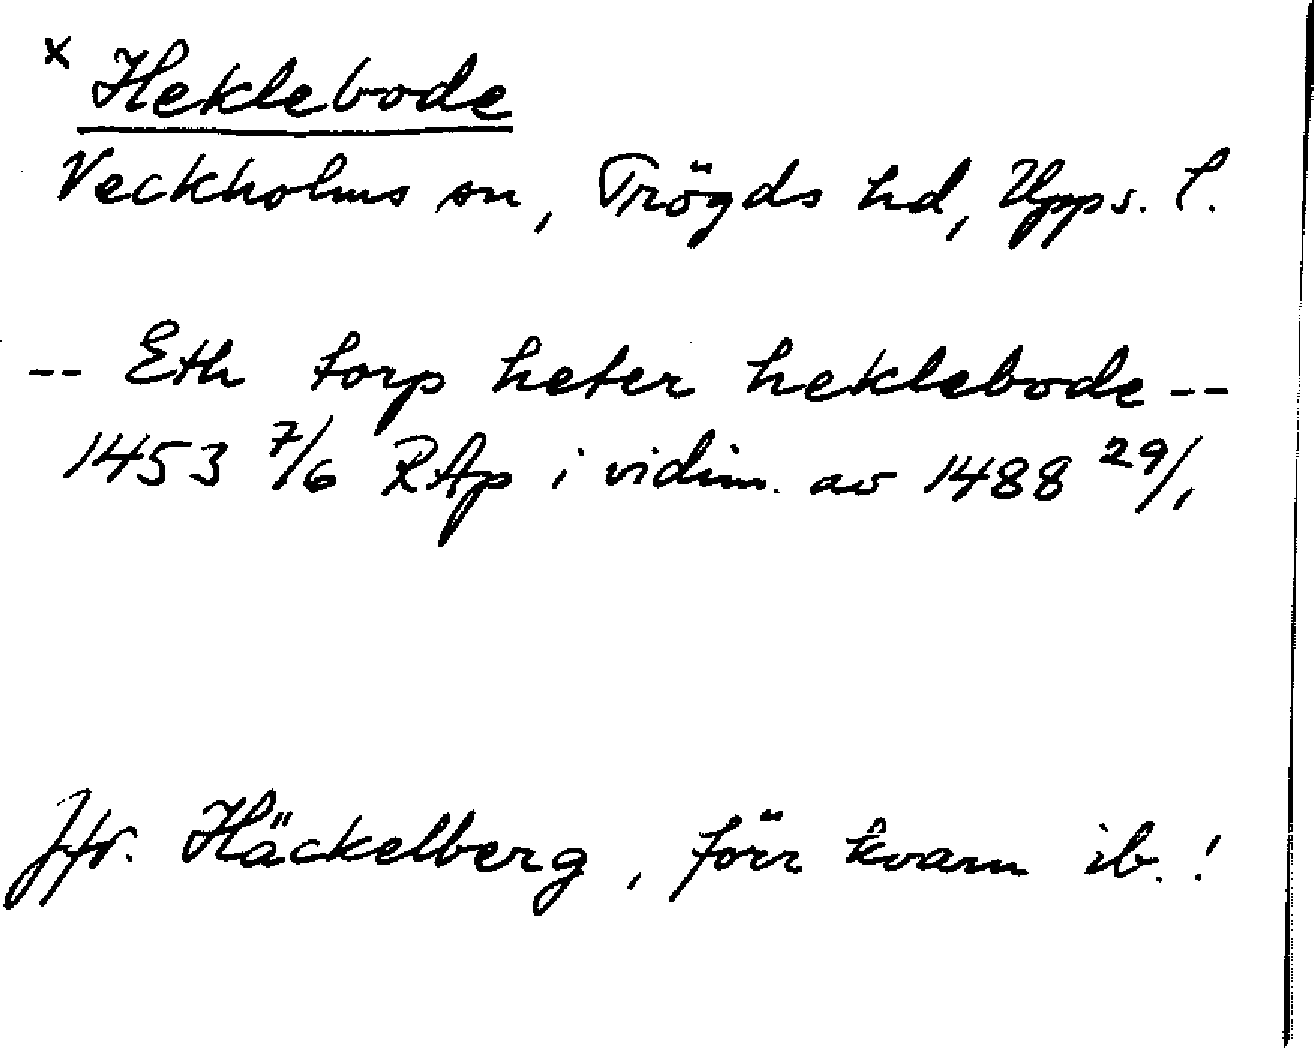 x Heklebode
Veckholms sn, Trögds hd, Upps. l.
-- Eth torp heter heklebode --
1453 7/6 RAp i vidim. av 1488 29/1
Jfr. Häckelberg, förr kvarn ib.!